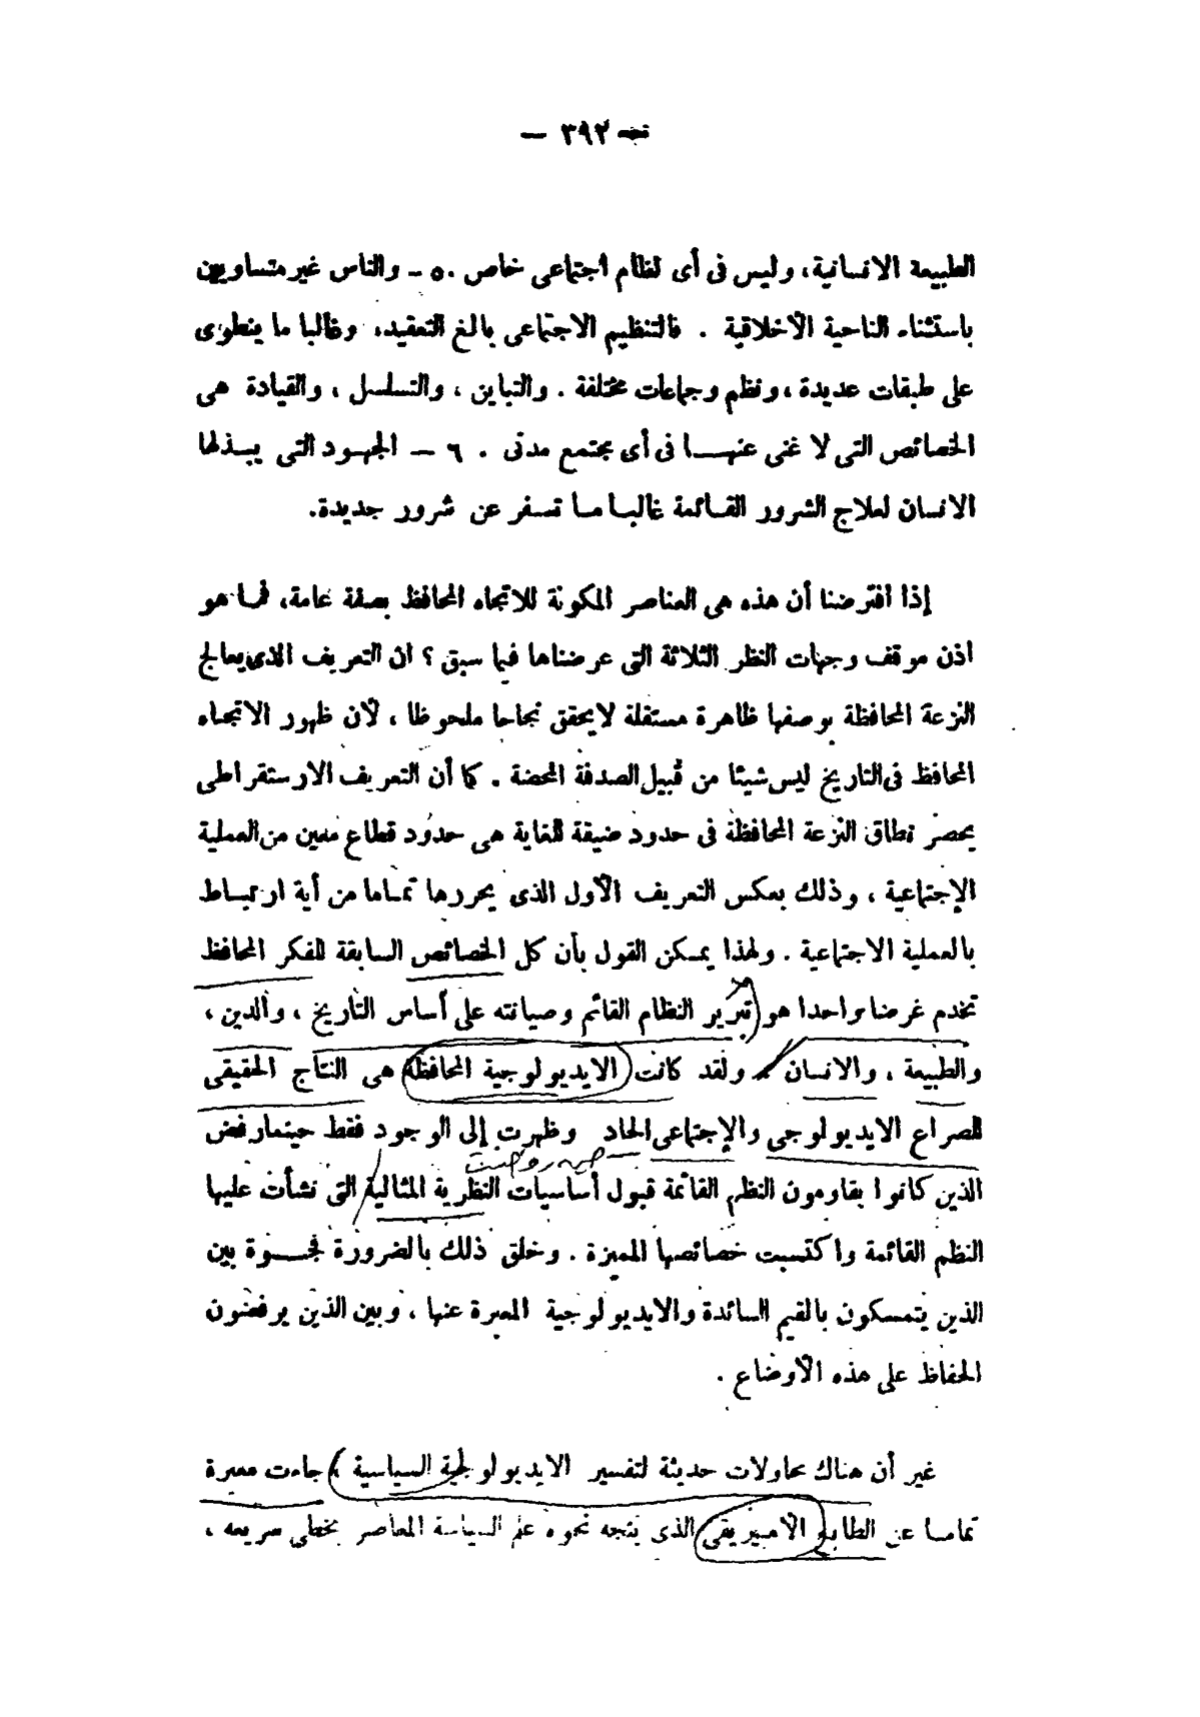 — ٣٩٢ —
الطبيعة الانسانية، وليس فى أى نظام اجتماعى خاص . ٥ - والناس غير متساويين
باستثناء الناحية الأخلاقية . فالتنظيم الاجتماعى بالغ التعقيد، وغالبا ما ينطوى
على طبقات عديدة ، ونظم وجماعات مختلفة . والتباين ، والتسلسل ، والقيادة هى
الخصائص التى لا غنى عنهــا فى أى مجتمع مدنى . ٦ — الجهود التى يبـذلها
الانسان لعلاج الشرور القـائمة غالبـا مـا تسفر عن شرور جديدة.
إذا افترضنا أن هذه هى العناصر المكونة للاتجاه المحافظ بصفة عامة، فما هو
اذن موقف وجهات النظر الثلاثة التى عرضناها فيما سبق ؟ ان التعريف الذى يعالج
النزعة المحافظة بوصفها ظاهرة مستقلة لا يحقق نجاحا ملحوظا ، لأن ظهور الاتجـاه
المحافظ فى التاريخ ليس شيئا من قبيل الصدفة المحضة . كما أن التعريف الارستقراطى
يحصر نطاق النزعة المحافظة فى حدود ضيقة للغاية هى حدود قطاع معين من العملية
الإجتماعية ، وذلك بعكس التعريف الأول الذى يحررها تمـاما من أية ارتبـاط
بالعملية الاجتماعية . ولهذا يمـكن القول بأن كل الخصائص السابقة للفكر المحافظ
تخدم غرضا واحدا هو تبرير النظام القائم وصيانته على أساس التاريخ ، والدين ،
والطبيعة ، والانسان . ولقد كانت الايديولوجية المحافظة هى النتاج الحقيقى
للصراع الايديولوجى والإجتماعى الحاد وظهرت إلى الوجود فقط حينما رفض
الذين كانوا يقاومون النظم القائمة قبول أساسيات النظرية المثالية التى نشأت عليها
النظم القائمة واكتسبت خصائصها المميزة . وخلق ذلك بالضرورة فجــوة بين
الذين يتمسكون بالقيم السائدة والايديولوجية المعبرة عنها ، وبين الذين يرفضون
الحفاظ على هذه الأوضاع .
غير أن هناك محاولات حديثة لتفسير الايديولوجية السياسية ، جاءت معبرة
تمامـا عن الطابع الامبيريقى الذى يتجه نحوه علم السياسة المعاصر بخطى سريعه ،